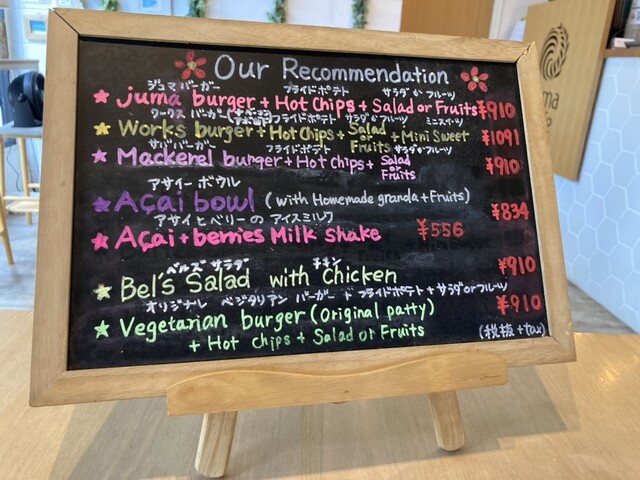 Our Recommendation
ジュマ バーガー フライドポテト サラダ か フルーツ
juma burger + Hot Chips + Salad or Fruits ¥910
ワークス バーガー フライドポテト サラダ か フルーツ ミニスイーツ
Works burger + Hot Chips + Salad or Fruits + Mini Sweet ¥1091
サバ バーガー フライドポテト サラダ か フルーツ
Mackerel burger + Hot Chips + Salad or Fruits ¥910
アサイー ボウル
Açai bowl (with Homemade granola + Fruits) ¥834
アサイ と ベリー の アイスミルク
Açai + berries Milk shake ¥556
ベルズ サラダ チキン
Bel's Salad with Chicken ¥910
オリジナル ベジタリアン バーガー フライドポテト + サラダ or フルーツ
Vegetarian burger (Original patty) ¥910
+ Hot chips + Salad or Fruits
(税抜 + tax)
ma